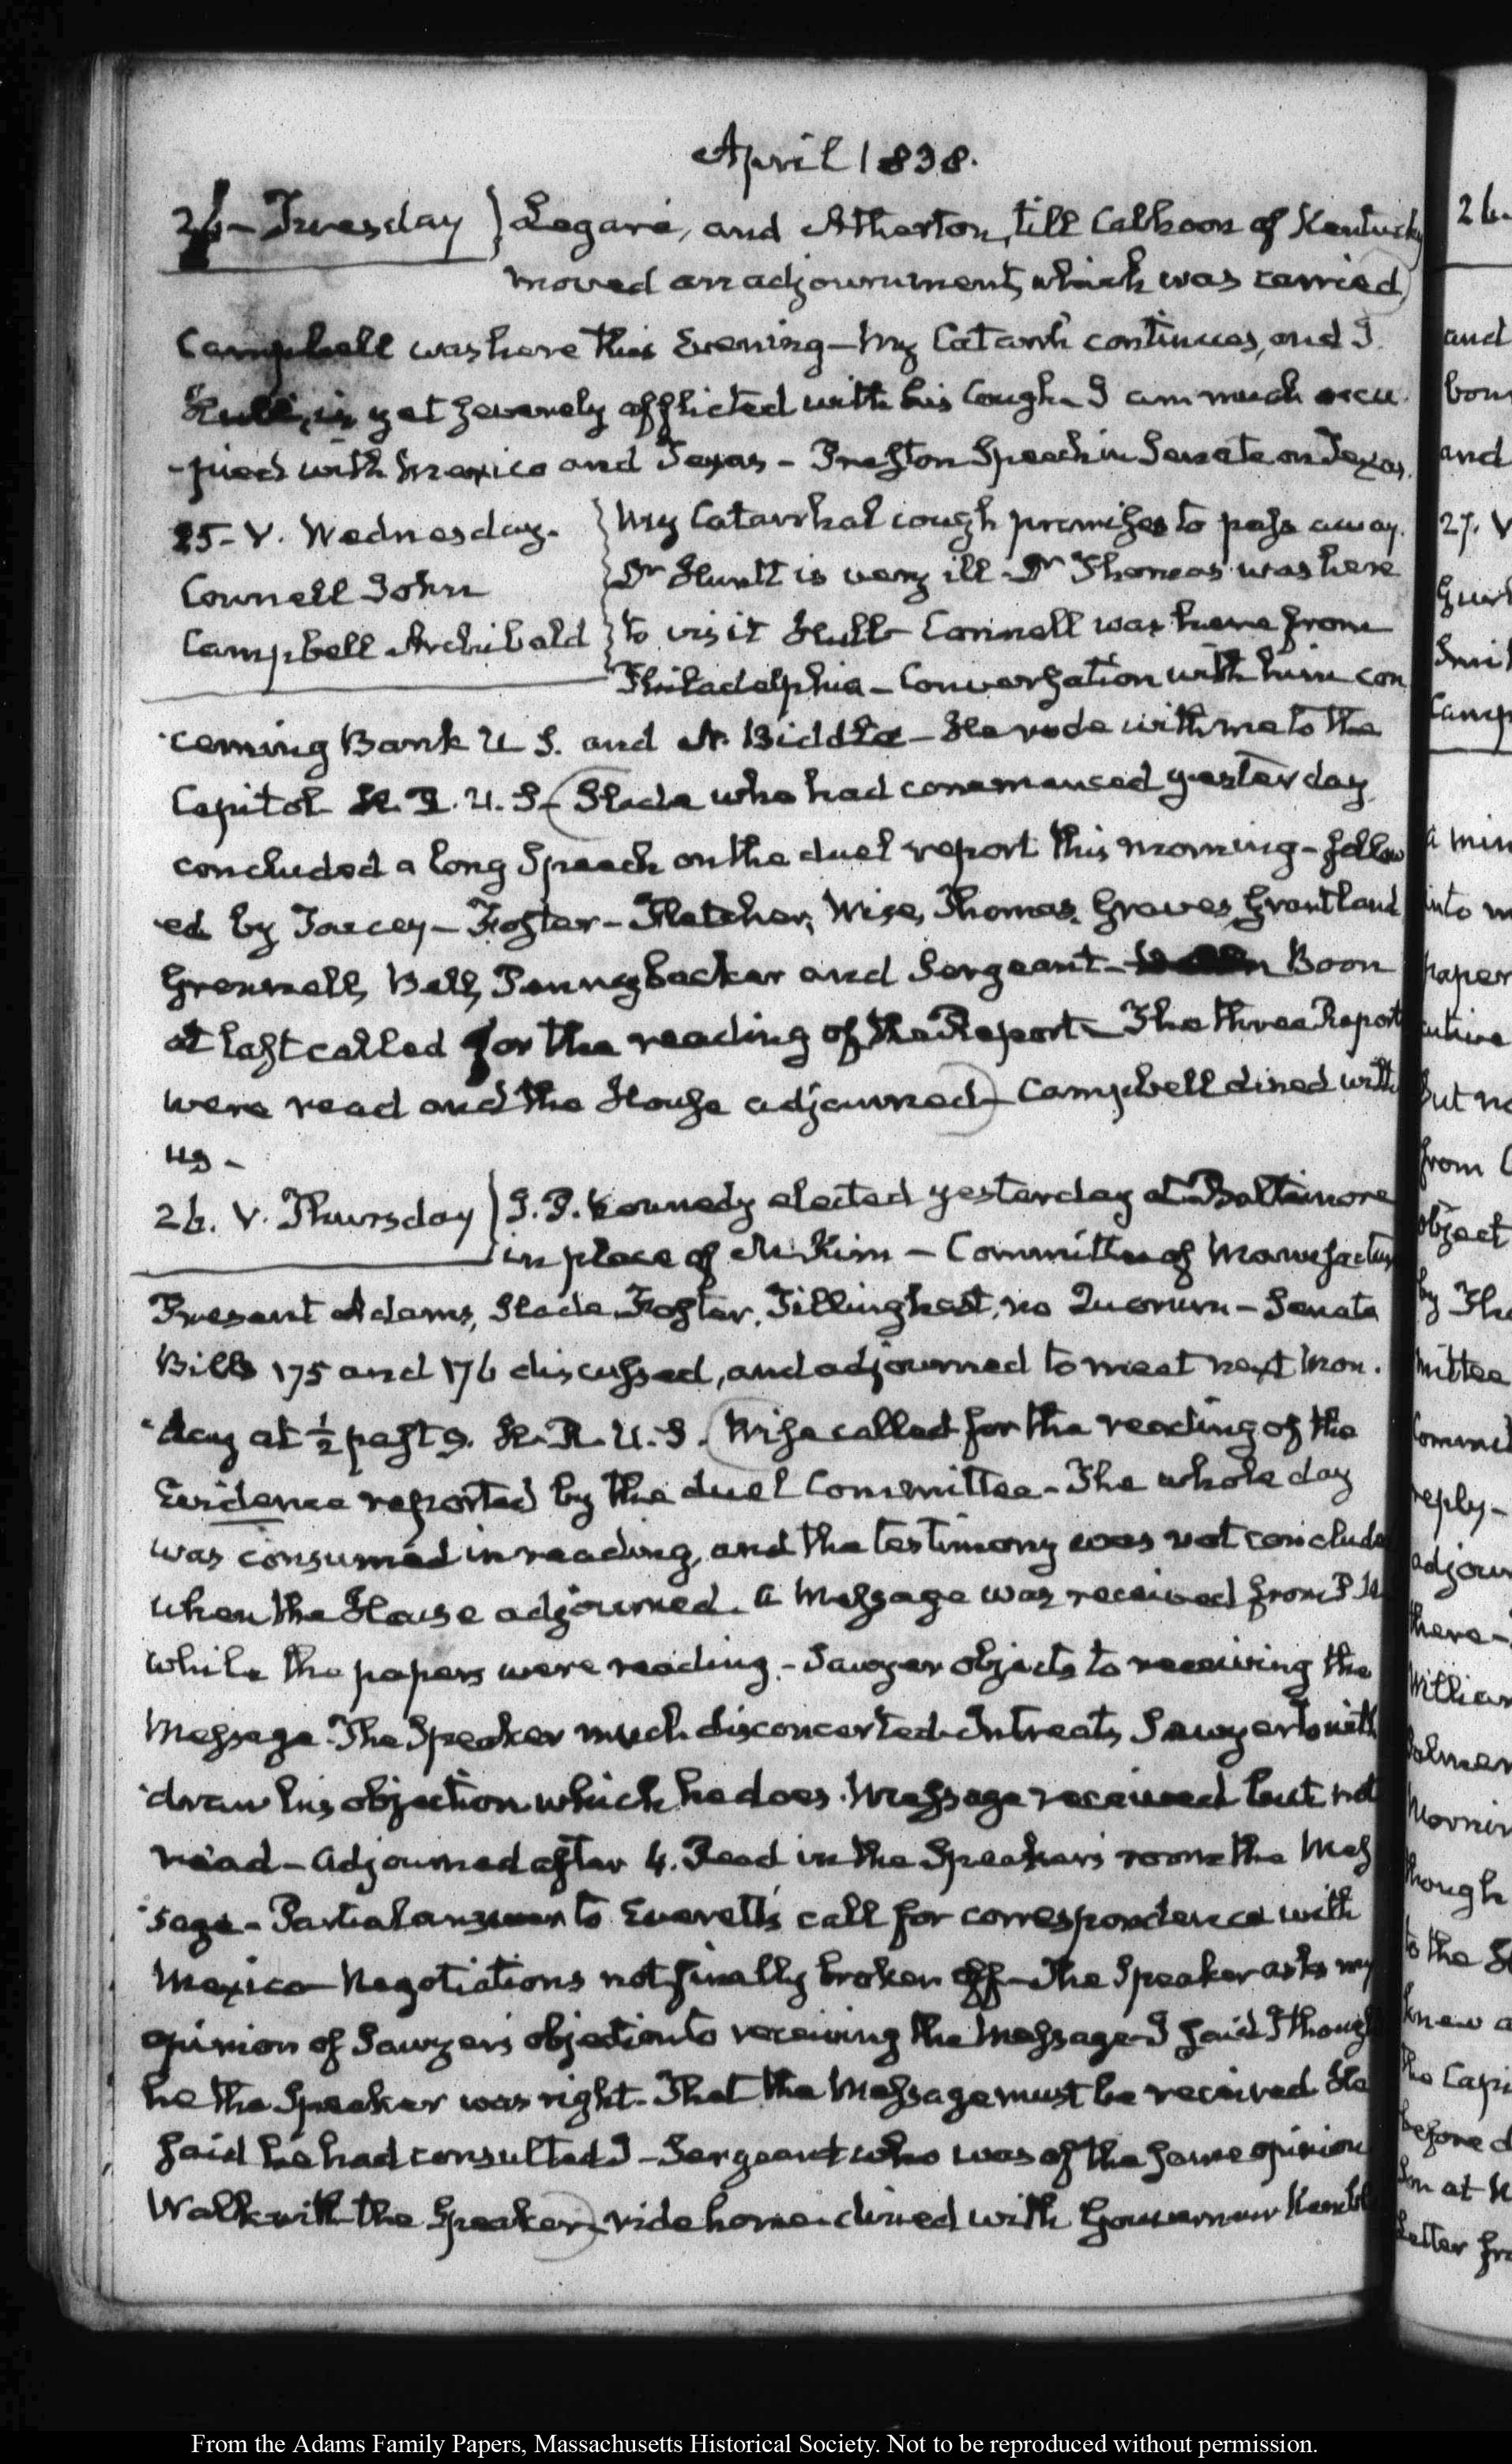 April 1838.
24 - Tuesday } Legaré, and Atherton, till Calhoon of Kentucky
moved an adjournment, which was carried)
Campbell was here this Evening - My Catarrh continues, and I.
Hull, is yet severely afflicted with his Cough - I am much occu-
-pied with Mexico and Texas - Preston Speech in Senate on Texas.
25 - V. Wednesday.
Connell John
Campbell Archibald
My Catarrhal cough promises to pass away.
Dr Huntt is very ill - Dr Thomas was here
to visit Hull - Connell was here from
Philadelphia - Conversation with him con
-cerning Bank U S. and N. Biddle - He rode with me to the
Capitol H. R. U. S - (Slade who had commenced yesterday
concluded a long Speech on the duel report this morning - follow
-ed by Toucey - Foster - Fletcher, Wise, Thomas, Graves, Grantland
Grennell, Bell, Pennybacker and Sergeant - Boon
at last called for the reading of the Report - The three Report
were read and the House adjourned) - Campbell dined with
us -
26. V. Thursday } J. P. Kennedy elected yesterday at Baltimore
in place of McKim - Committee of Manufactu
Present Adams, Slade, Foster, Tillinghast, no Quorum - Senate
Bills 175 and 176 discussed, and adjourned to meet next Mon.
-day at ½ past 9. H. R. U. S. (Wise called for the reading of the
Evidence reported by the duel Committee - The whole day
was consumed in reading, and the testimony was not conclude
when the House adjourned. A Message was received from P. U.
while the papers were reading. - Sawyer objects to receiving the
Message. The Speaker much disconcerted - Intreats Sawyer to with
-draw his objection which he does. Message received but not
read - Adjourned after 4. Read in the Speaker's room the Mes
-sage - Partial answer to Everett's call for correspondence with
Mexico - Negotiations not finally broken off - The Speaker asks my
opinion of Sawyer's objection to receiving the Message - I said I though
he the Speaker was right - That the Message must be received He
said he had consulted J - Sergeant who was of the same opinion
Walk with the Speaker) - ride home - dined with Gouverneur Kembl
26
and
bou
and
27. V
Smi
Camp
a min
into m
paper
but no
from
object
by Tho
mittee
Commi
reply -
adjour
there -
William
Mornin
though
to the
knew a
the Capi
before d
Letter fro
From the Adams Family Papers, Massachusetts Historical Society. Not to be reproduced without permission.